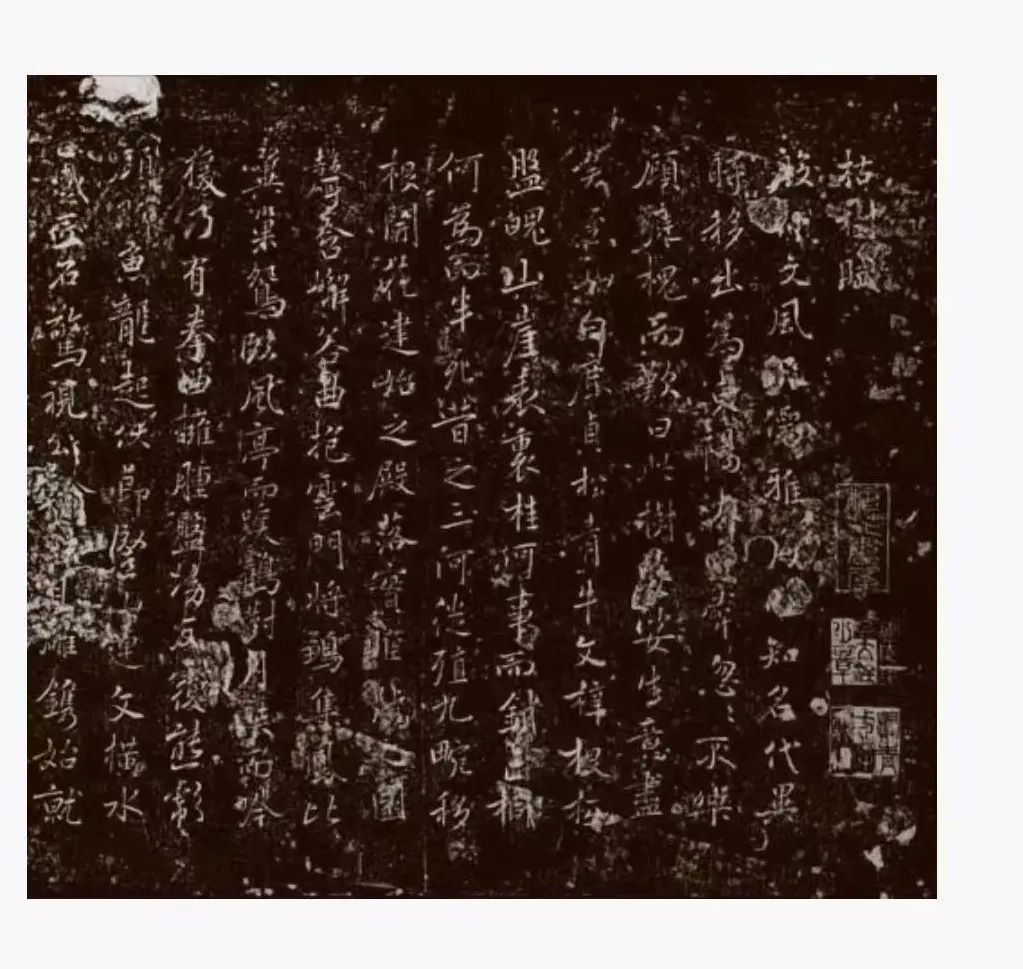 枯樹賦
殷仲文風流儒雅海内知名代異
時移出為東陽太守常忽〻不樂
顧庭槐而歎曰此樹婆娑生意盡
矣至如白鹿貞松青牛文梓根柢
盤魄山崖表裏桂何事而銷亡桐
何為而半死昔之三河徙殖九畹移
根開花建始之殿落實睢陽之園
聲含嶰谷曲抱雲門將鶵集鳳比
翼巢鴛臨風亭而唳鶴對月峽而吟
猨乃有拳曲擁腫盤坳反覆熊彪
魚龍起伏節竪山連文橫水
蹙匠石驚視公輸雕鐫始就